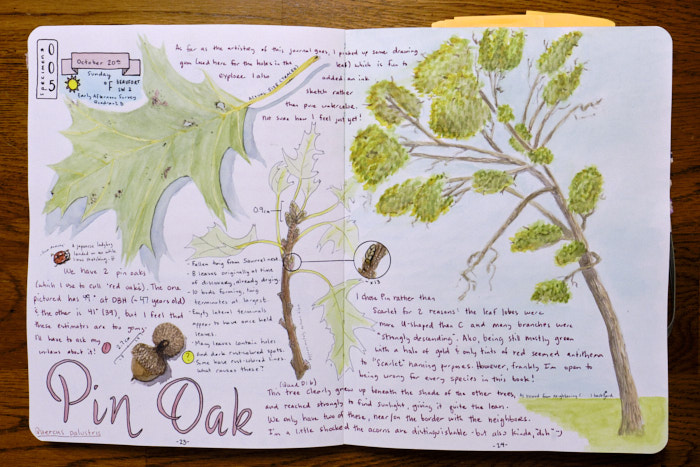 Specimen
005
October 20th
Sunday
°F BEAUFORT
SW 2
Early Afternoon Survey
As far as the artistry of this journal goes, I picked up some drawing
gum (used here for the holes in the leaf) which is fun to
explore. I also added an ink
sketch rather
than pure watercolor.
Not sure how I feel just yet!
ACTUAL SIZE (TRACED)
A japanese ladybug
landed on me while
I was sketching
We have 2 pin oaks
(which I use to call 'red oaks'). The one
pictured has 49" at DBH (~47 years old)
& the other is 41" (39), but I feel that
these estimates are too young.
I'll have to ask my
arborist about it!
0.9cm
- Fallen twig from Squirrel nest.
- 8 leaves originally at time
of discovery, already drying.
- 10 buds forming, twig
terminates at largest.
- Empty lateral terminals
appear to have once held
leaves.
- Many leaves contain holes
and dark rust-colored spots.
Some have rust-colored lines.
What causes these?
x13
I chose Pin rather than
Scarlet for 2 reasons: the leaf lobes were
more U-shaped than C and many branches were
"strongly descending". Also, being still mostly green
with a halo of gold & only tints of red seemed antithema
to "Scarlet" naming purposes. However, frankly I'm open to
being wrong for every species in this book!
Pin Oak
Quercus palustris
This tree clearly grew up beneath the shade of the other trees,
and reached strongly to find sunlight, giving it quite the lean.
We only have two of these, near/on the border with the neighbors.
I'm a little shocked the acorns are distinguishable - but also kinda, "duh"
-23-
-24-